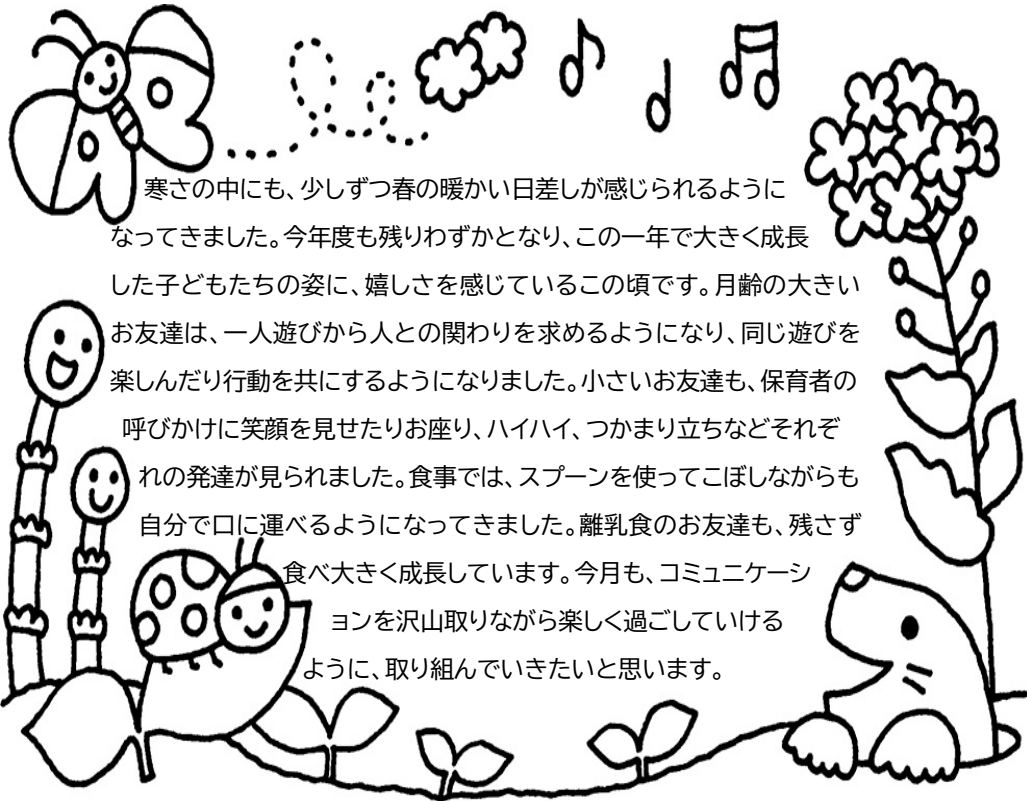 寒さの中にも、少しずつ春の暖かい日差しが感じられるように
なってきました。今年度も残りわずかとなり、この一年で大きく成長
した子どもたちの姿に、嬉しさを感じているこの頃です。月齢の大きい
お友達は、一人遊びから人との関わりを求めるようになり、同じ遊びを
楽しんだり行動を共にするようになりました。小さいお友達も、保育者の
呼びかけに笑顔を見せたりお座り、ハイハイ、つかまり立ちなどそれぞ
れの発達が見られました。食事では、スプーンを使ってこぼしながらも
自分で口に運べるようになってきました。離乳食のお友達も、残さず
食べ大きく成長しています。今月も、コミュニケーシ
ョンを沢山取りながら楽しく過ごしていける
ように、取り組んでいきたいと思います。